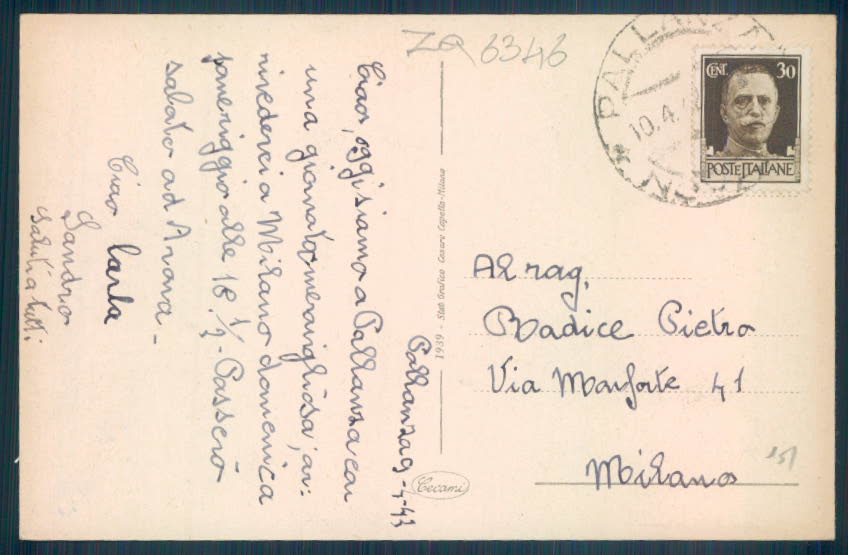 ZQ 6346
PALLANZA
10.4.
CENT. 30
POSTE ITALIANE
Pallanza 9-4-43
Ciao, oggi siamo a Pallanza con
una giornata meravigliosa; ar:
rivederci a Milano domenica
pomeriggio alle 18 1/2 - Passerò
sabato ad Arona -
Ciao Carla
Sandro
Saluti a tutti
1939 - Stab. Grafico Cesare Capello - Milano
Cecami
Al rag.
Radice Pietro
Via Monforte 41
Milano
151